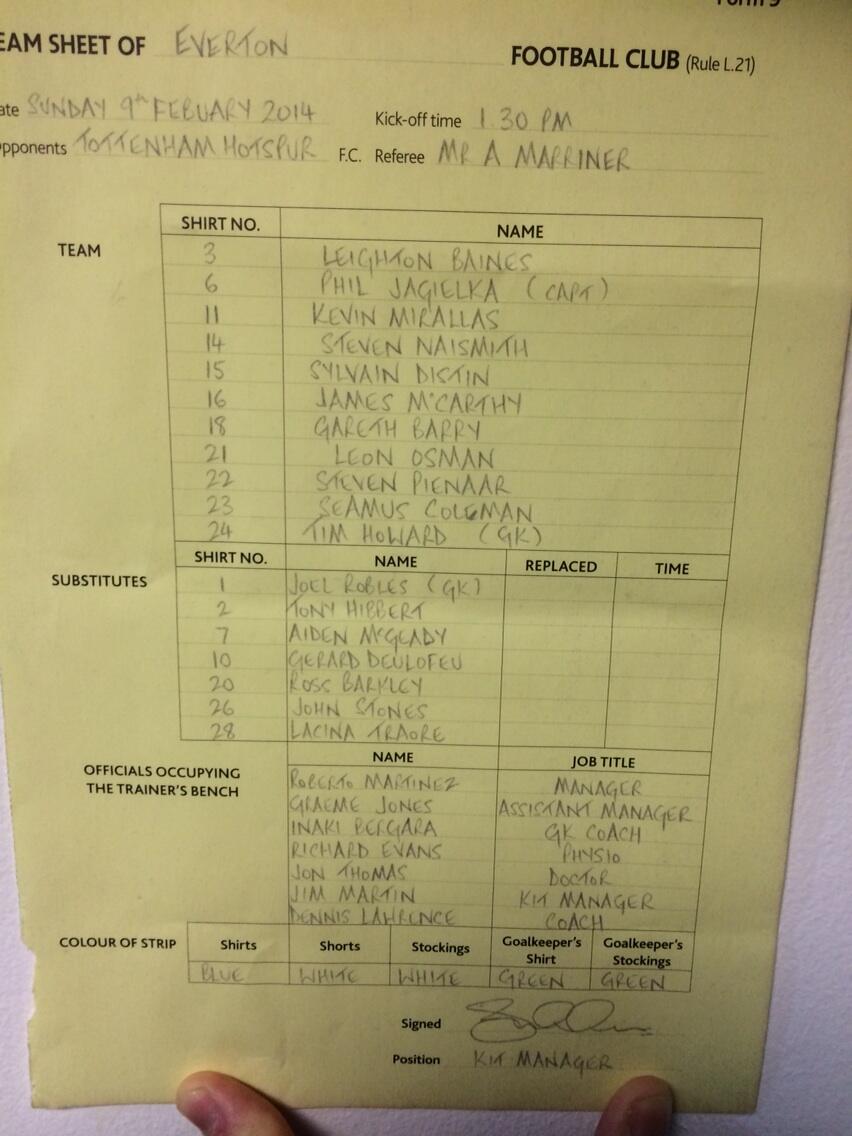 EAM SHEET OF EVERTON FOOTBALL CLUB (Rule L.21)
ate SUNDAY 9th FEBUARY 2014 Kick-off time 1.30 PM
pponents TOTTENHAM HOTSPUR F.C. Referee MR A MARRINER
SHIRT NO. NAME
TEAM
3 LEIGHTON BAINES
6 PHIL JAGIELKA (CAPT)
11 KEVIN MIRALLAS
14 STEVEN NAISMITH
15 SYLVAIN DISTIN
16 JAMES McCARTHY
18 GARETH BARRY
21 LEON OSMAN
22 STEVEN PIENAAR
23 SEAMUS COLEMAN
24 TIM HOWARD (GK)
SHIRT NO. NAME REPLACED TIME
SUBSTITUTES
1 JOEL ROBLES (GK)
2 TONY HIBBERT
7 AIDEN McGEADY
10 GERARD DEULOFEU
20 ROSS BARKLEY
26 JOHN STONES
28 LACINA TRAORE
NAME JOB TITLE
OFFICIALS OCCUPYING
THE TRAINER'S BENCH
ROBERTO MARTINEZ MANAGER
GRAEME JONES ASSISTANT MANAGER
INAKI BERGARA GK COACH
RICHARD EVANS PHYSIO
JON THOMAS DOCTOR
JIM MARTIN KIT MANAGER
DENNIS LAWRENCE COACH
COLOUR OF STRIP Shirts Shorts Stockings Goalkeeper's Shirt Goalkeeper's Stockings
BLUE WHITE WHITE GREEN GREEN
Signed
Position KIT MANAGER